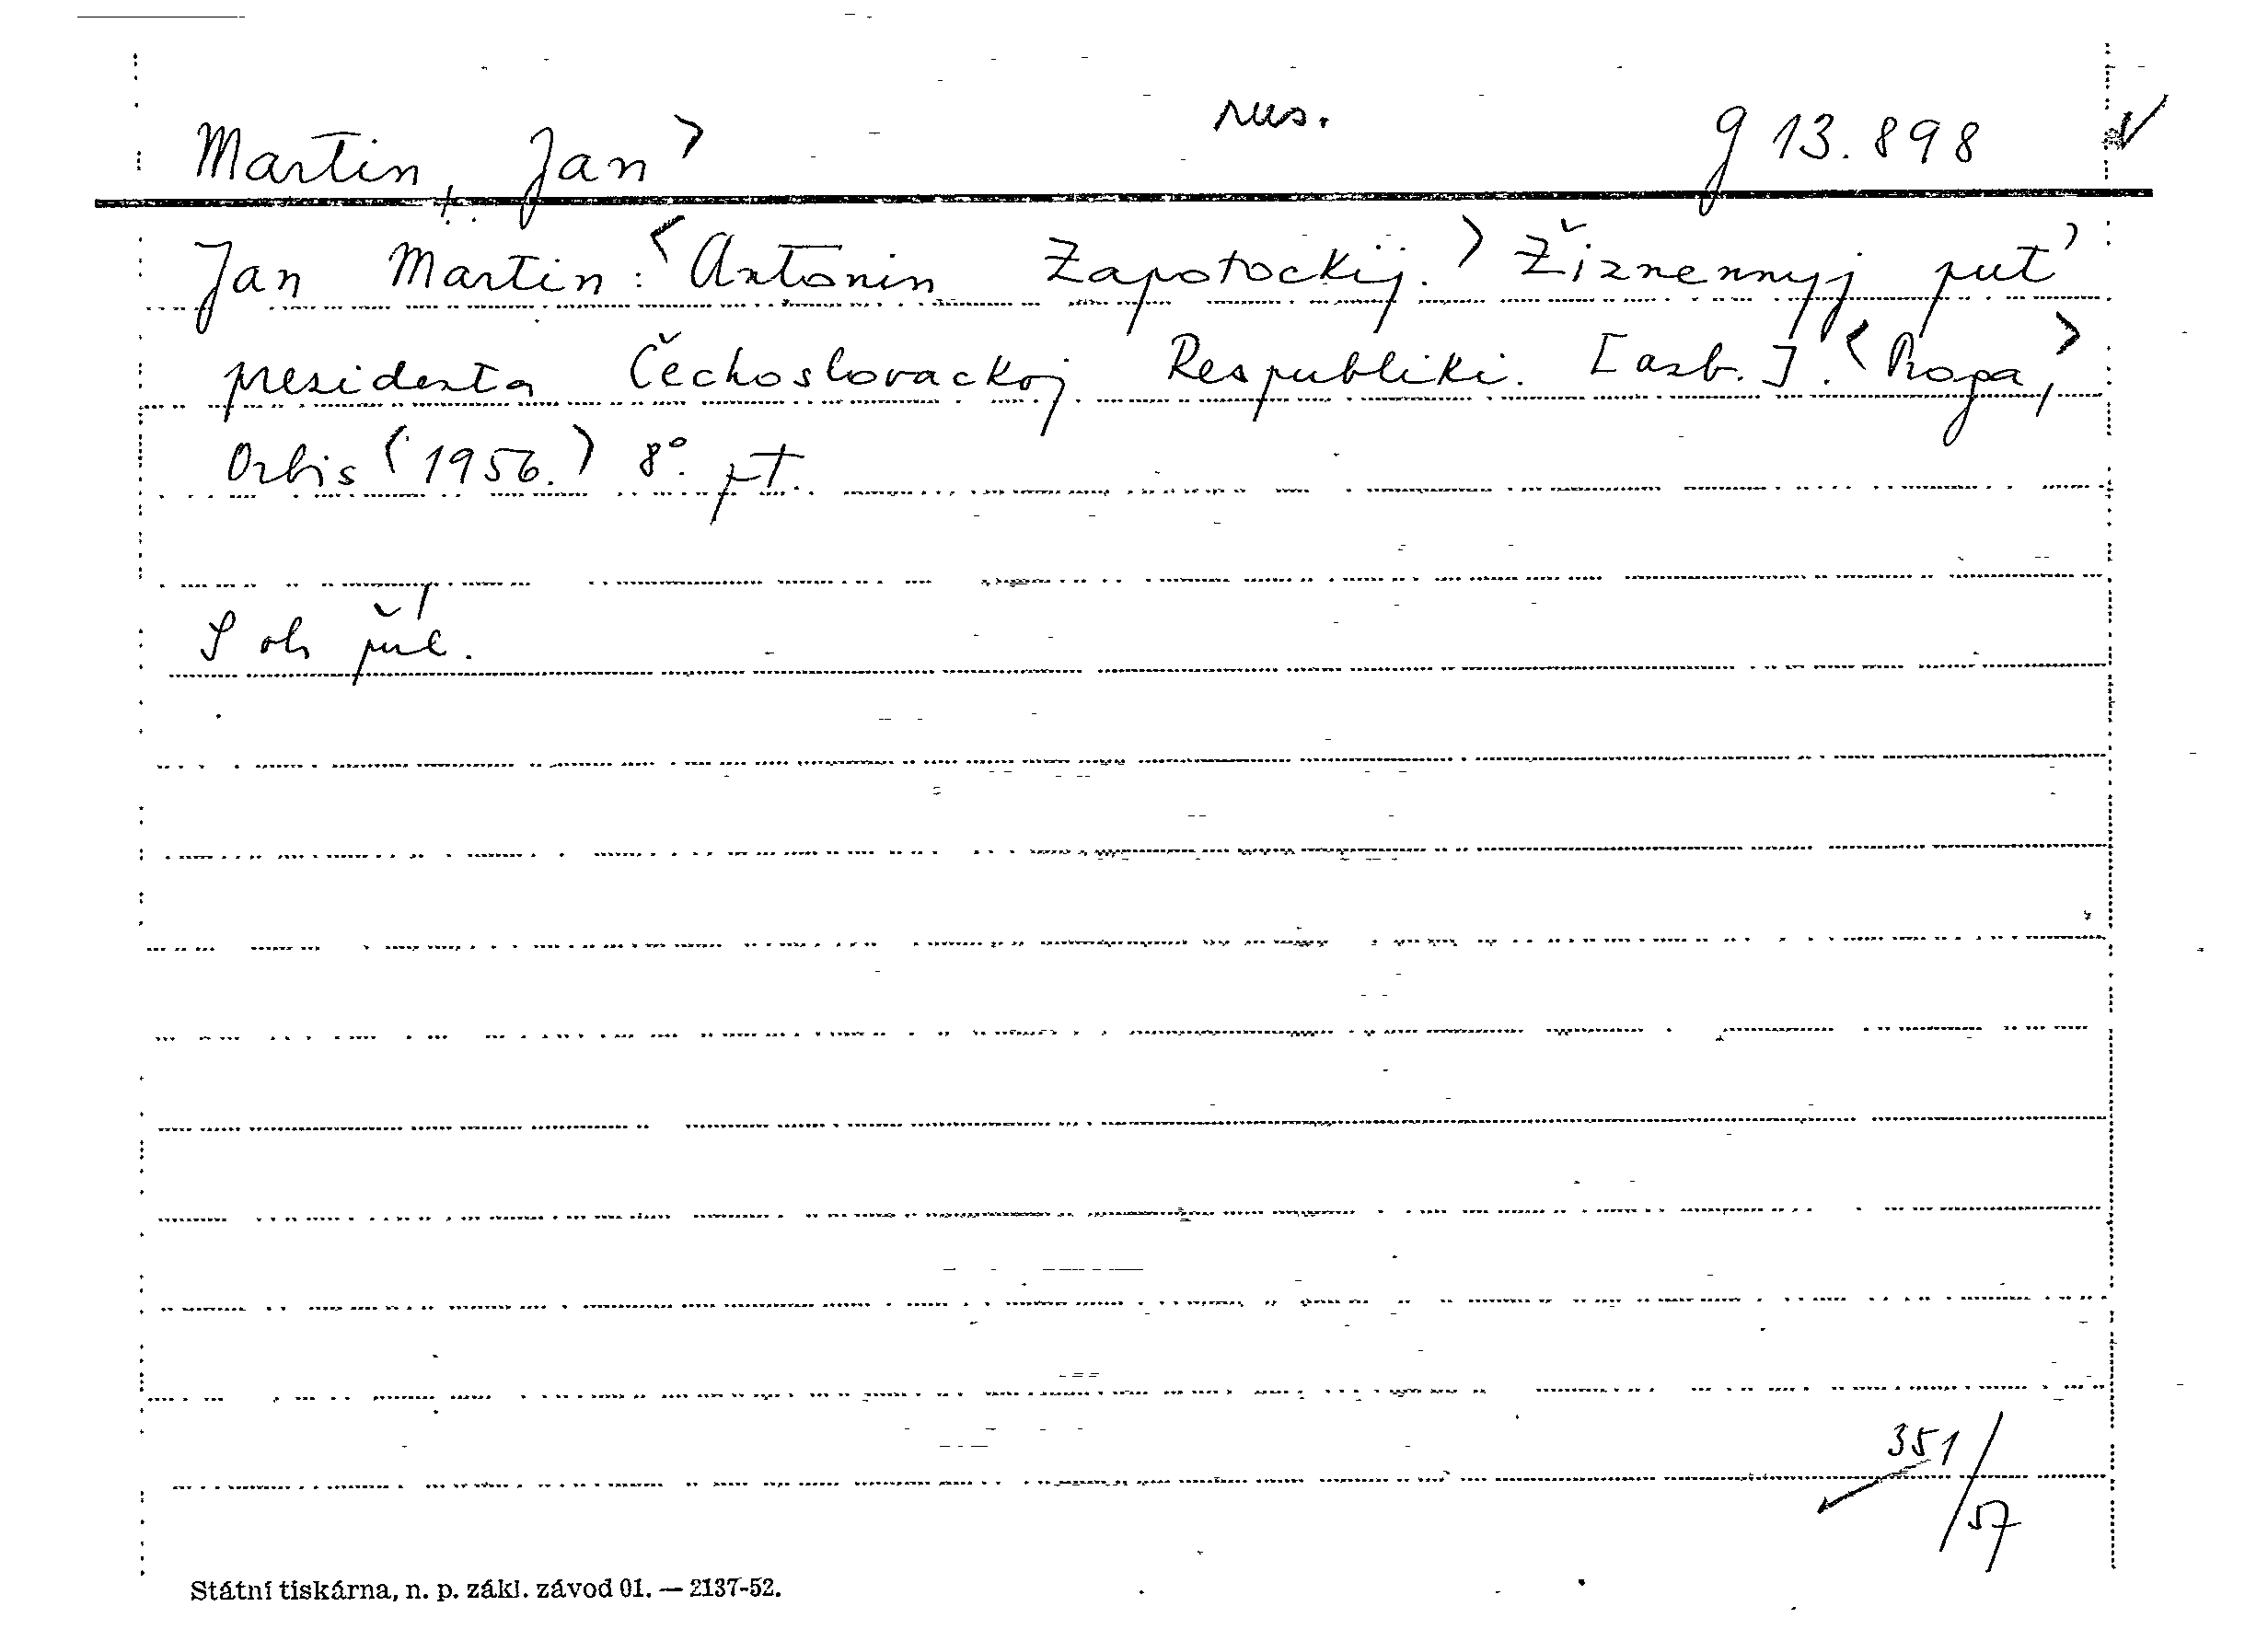 Martin, Jan> rus. g 13.898
Jan Martin: <Antonin Zapotockij.> Žiznennyj put'
presidenta Čechoslovackoj Respubliki. [azb.]. <Praga,>
Orbis <1956.> 8°. pt.
S ob příl.
351/57
Státní tiskárna, n. p. zákl. závod 01. — 2137-52.